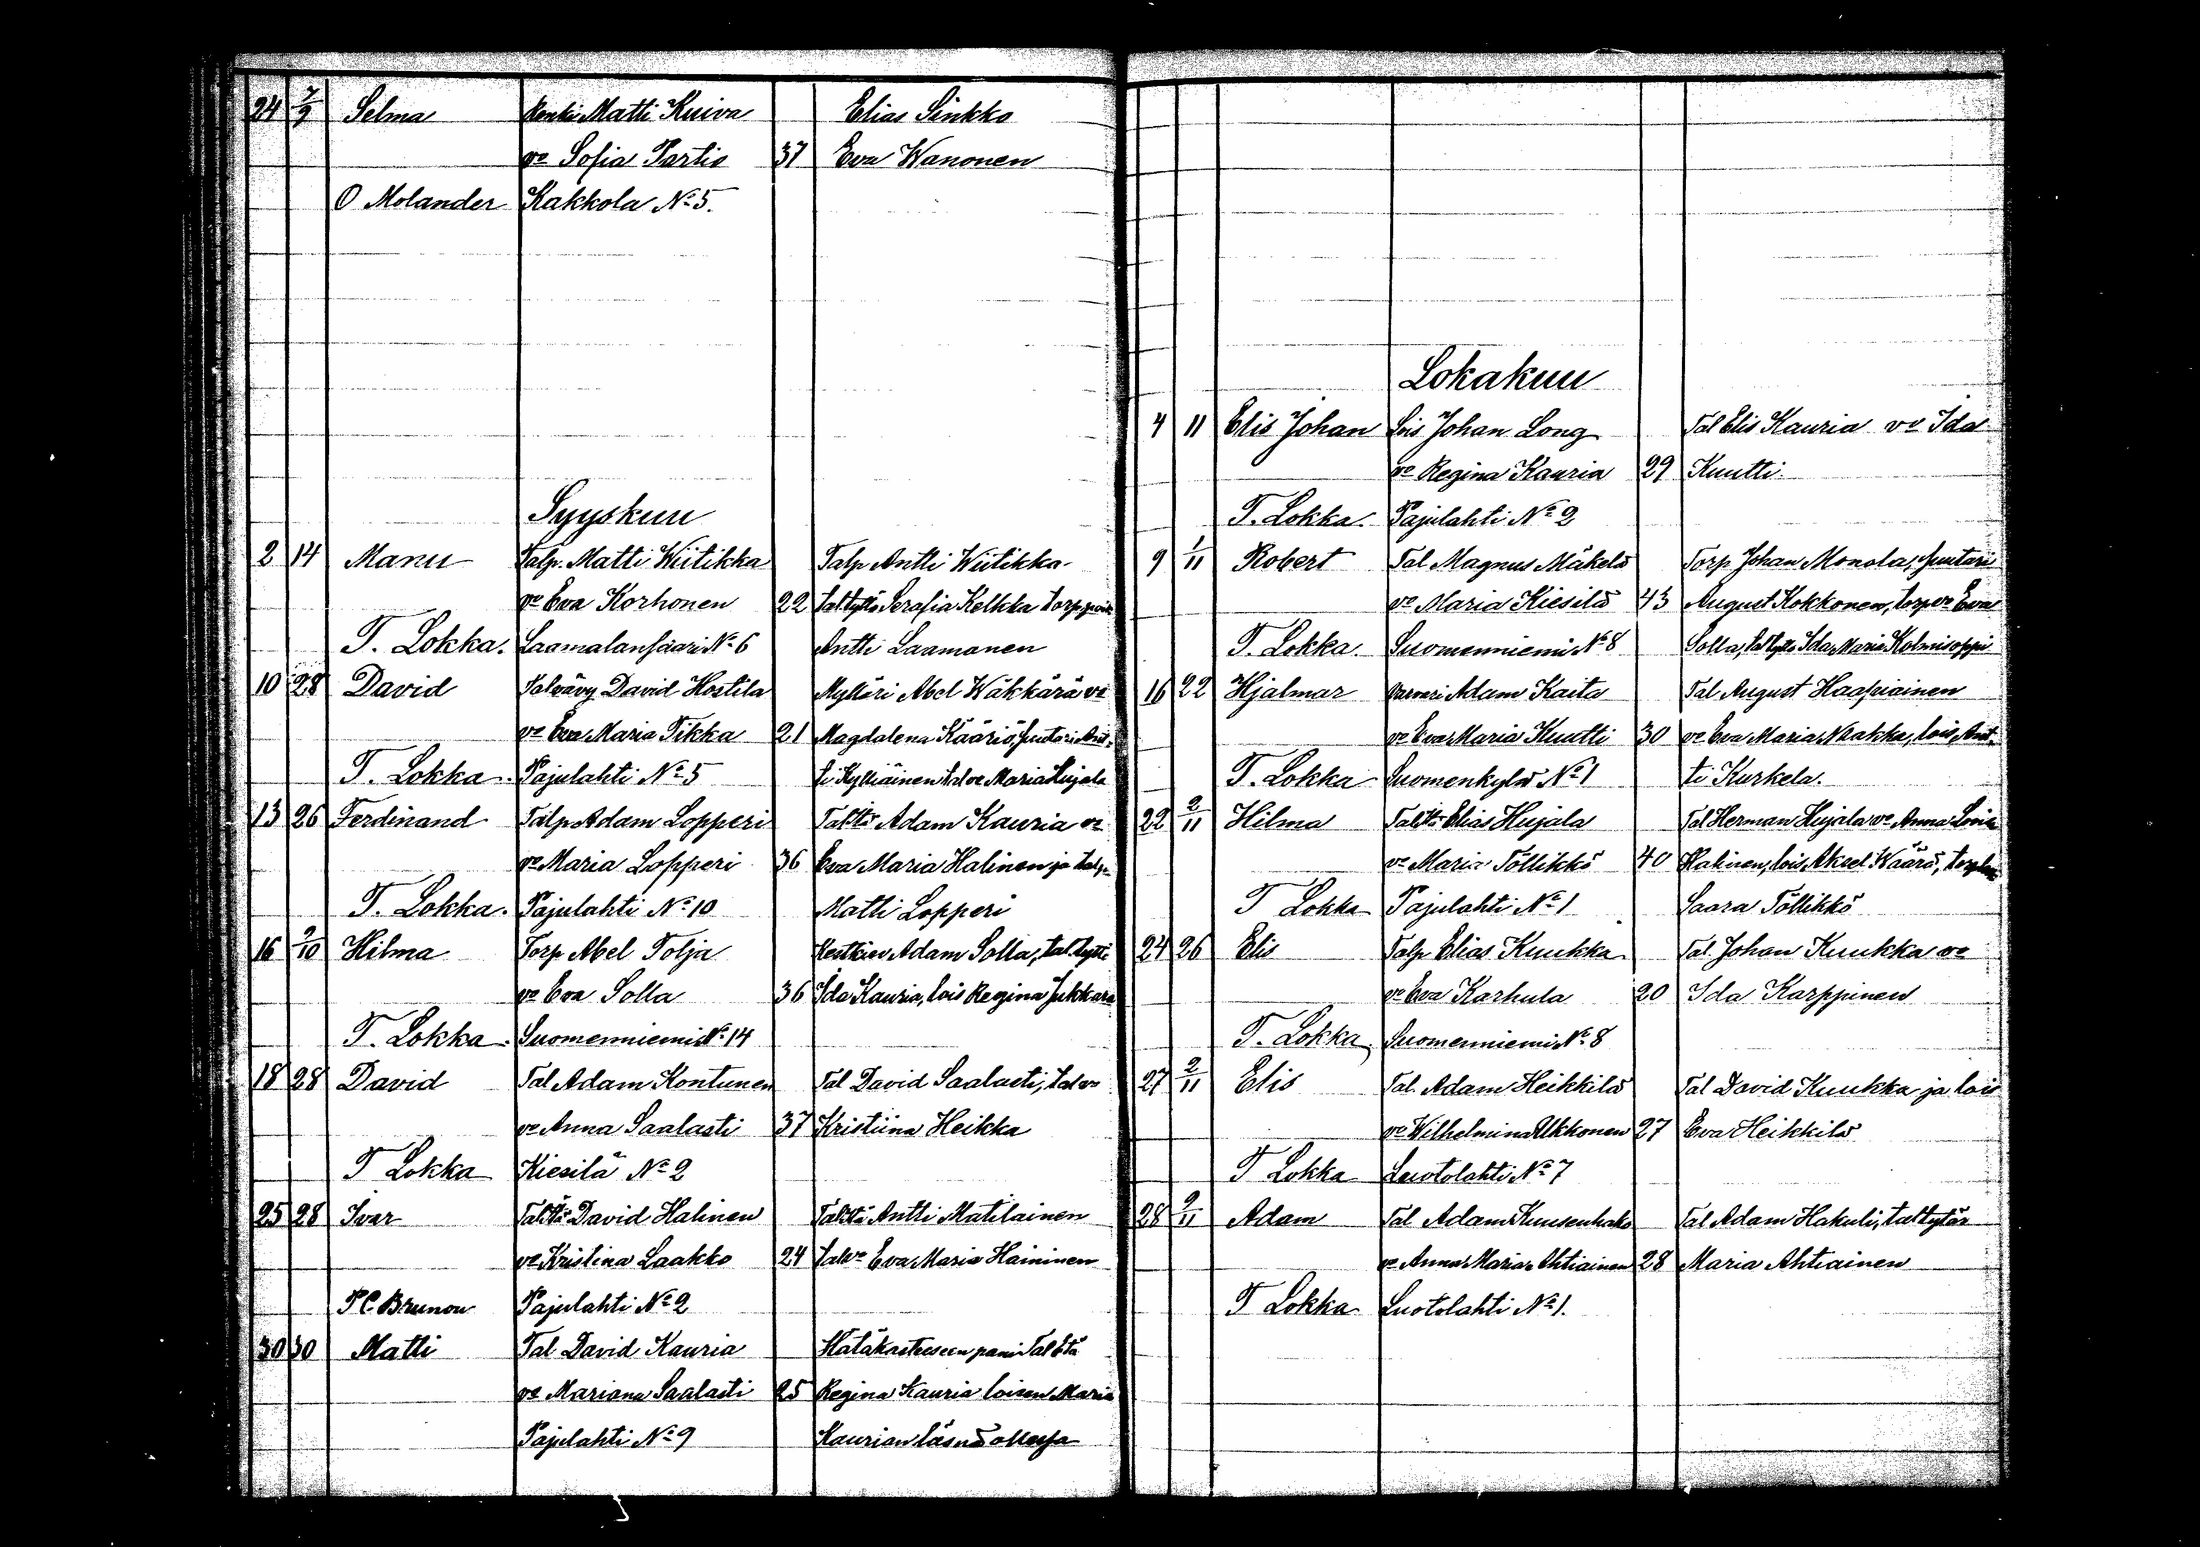 24 7/9 Selma Renki Matti Kuiva Elias Sinkko
vo Sofia Partio 37 Eva Wanonen
O Molander Kakkola No 5.
Syyskuu
2 14 Manu Talp. Matti Wiitikka Talp Antti Wiitikka
vo Eva Korhonen 22 Serafia Kelkka
T. Lokka. Laamalansaari No 6 Antti Laamanen
10 28 David Talvävy David Hostila Mylläri Abel Wäkkärä vo
vo Eva Maria Tikka 21 Magdalena Kääriö,
T. Lokka. Pajulahti No 5 Maria Hujala
13 26 Ferdinand Talp Adam Lopperi Adam Kauria vo
vo Maria Lopperi 36 Eva Maria Halinen ja talp.
T. Lokka. Pajulahti No 10 Matti Lopperi
16 2/10 Hilma Torp Abel Tolja Adam Solla,
vo Eva Solla 36 Ida Kauria, lois Regina Jukkara
T. Lokka. Suomenniemi No 14
18 28 David Tal Adam Kontunen Tal David Saalasti, tal vo
vo Anna Saalasti 37 Kristiina Heikka
T Lokka Kiesilä No 2
25 28 Ivar David Halinen Antti Matilainen
vo Kristina Laakko 24 talvo Eva Maria Haininen
P C Brunou Pajulahti No 2
30 30 Matti Tal David Kauria Hätäkasteseen pani
vo Mariana Saalasti 25 Regina Kauria loisen Maria
Pajulahti No 9 Kaurian läsnä ollessa
Lokakuu
4 11 Elis Johan Lois Johan Long Tal Elis Kauria vo Ida
vo Regina Kauria 29 Kuutti.
T. Lokka. Pajulahti No 2
9 1/11 Robert Tal Magnus Mäkelä Torp Johan Monola,
vo Maria Kiesilä 43 August Kokkonen, torp vo Eva
T. Lokka. Suomenniemi No 8 Solla, Ida Maria Kolmisoppi
16 22 Hjalmar Adam Kaita Tal August Haapiainen
vo Eva Maria Kuutti 30 vo Eva Maria Naakka, lois Ant-
T. Lokka Suomenkylä No 1 ti Kurkela.
22 2/11 Hilma Elias Hujala Tal Herman Hujala vo Anna
vo Maria Töllikkö 40 Halinen, lois Akseli Wäärä,
T Lokka Pajulahti No 1 Saara Töllikkö
24 26 Elis Talp Elias Kuukka Tal. Johan Kuukka vo
vo Eva Karhula 20 Ida Karppinen
T. Lokka Suomenniemi No 8
27 2/11 Elis Tal. Adam Heikkilä Tal David Kuukka ja lois
vo Wilhelmina Ukkonen 27 Eva Heikkilä
T Lokka Luotolahti No 7
28 2/11 Adam Tal Adam Kuusenhako Tal Adam Hakuli, taltytär
vo Anna Maria Ahtiainen 28 Maria Ahtiainen
T Lokka Luotolahti No 1.